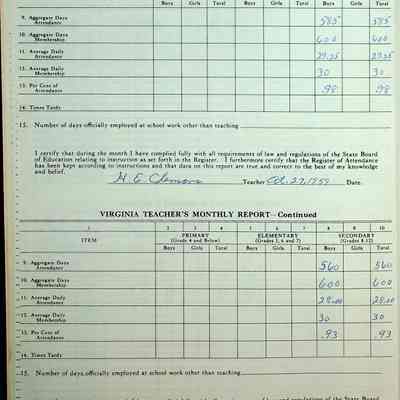 Boys Girls Total Boys Girls Total Boys Girls Total
9. Aggregate Days Attendance 585 585
10. Aggregate Days Membership 600 600
11. Average Daily Attendance 29.25 29.25
12. Average Daily Membership 30 30
13. Per Cent of Attendance .98 .98
14. Times Tardy
15. Number of days officially employed at school work other than teaching
I certify that during the month I have complied fully with all requirements of law and regulations of the State Board
of Education relating to instruction as set forth in the Register. I furthermore certify that the Register of Attendance
has been kept according to instructions and that data on this report are true and correct to the best of my knowledge
and belief.
H. E. Clemons Teacher Oct. 27, 1959 Date.
VIRGINIA TEACHER'S MONTHLY REPORT—Continued
1 2 3 4 5 6 7 8 9 10
ITEM PRIMARY (Grade 4 and Below) ELEMENTARY (Grades 5, 6 and 7) SECONDARY (Grades 8-12)
Boys Girls Total Boys Girls Total Boys Girls Total
9. Aggregate Days Attendance 560 560
10. Aggregate Days Membership 600 600
11. Average Daily Attendance 28.00 28.00
12. Average Daily Membership 30 30
13. Per Cent of Attendance .93 .93
14. Times Tardy
15. Number of days officially employed at school work other than teaching